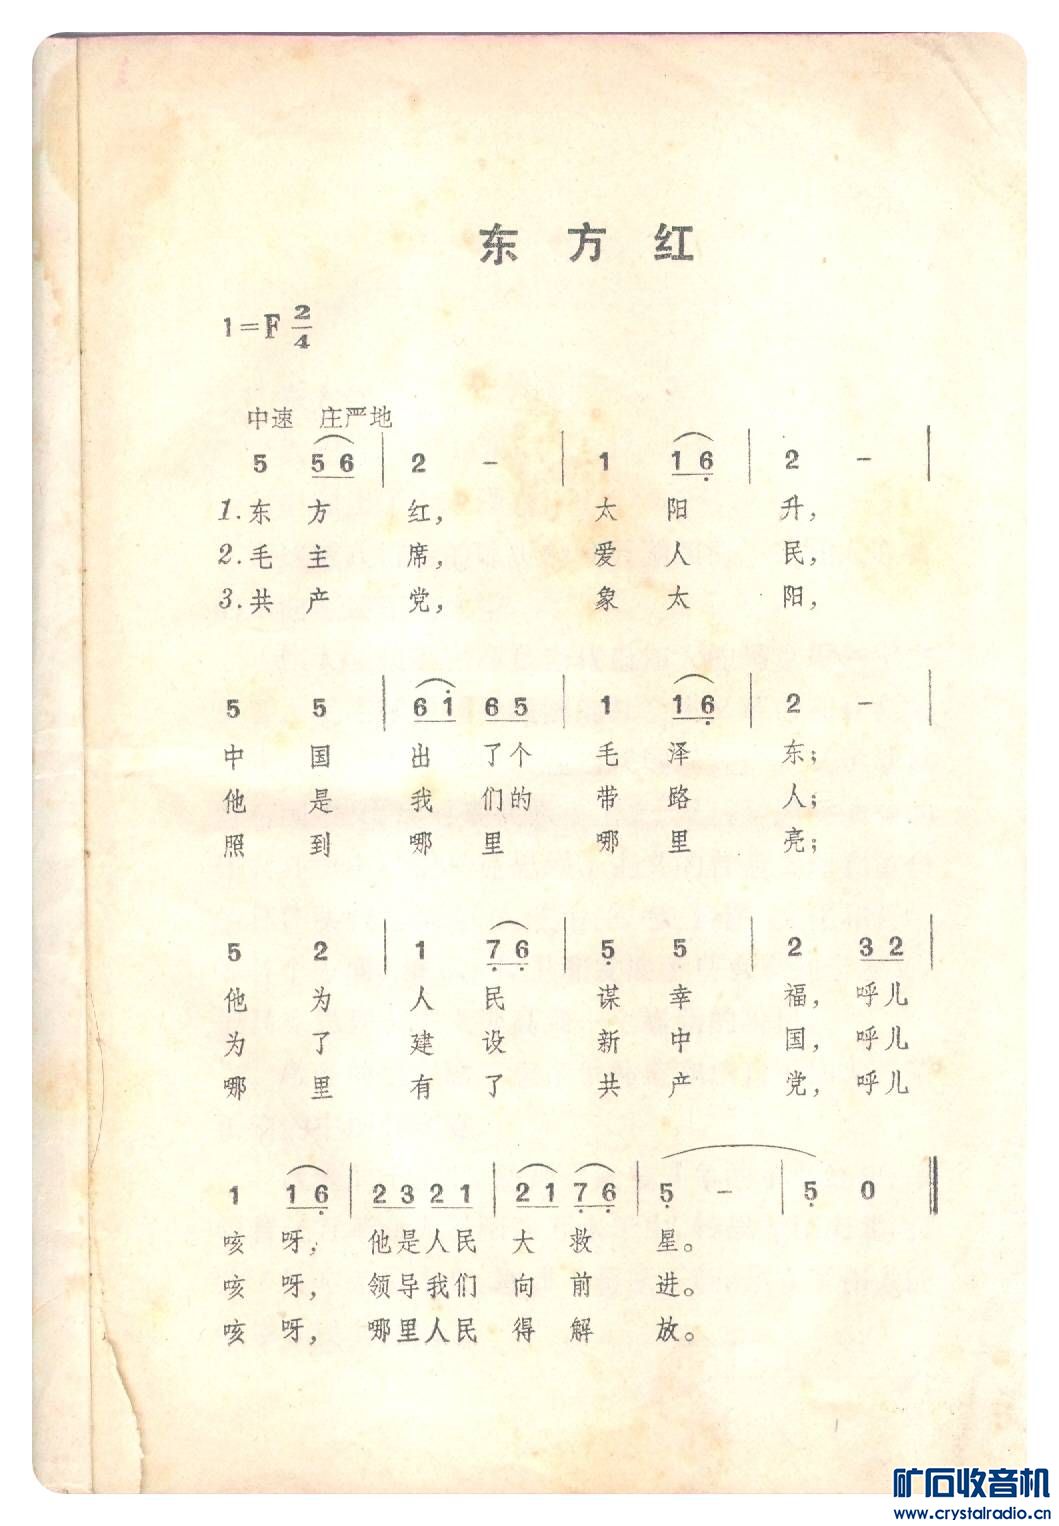 东方红
1=F 2/4
中速 庄严地
5 5 6 | 2 - | 1 1 6̣ | 2 - |
1.东方红, 太阳升,
2.毛主席, 爱人民,
3.共产党, 象太阳,
5 5 | 6 i 6 5 | 1 1 6̣ | 2 - |
中国出了个毛泽东;
他是我们的带路人;
照到哪里哪里亮;
5 2 | 1 7̣ 6̣ | 5̣ 5 | 2 3 2 |
他为人民谋幸福, 呼儿
为了建设新中国, 呼儿
哪里有了共产党, 呼儿
1 1 6̣ | 2 3 2 1 | 2 1 7̣ 6̣ | 5̣ - | 5̣ 0 ‖
咳呀, 他是人民大救星。
咳呀, 领导我们向前进。
咳呀, 哪里人民得解放。
矿石收音机
www.crystalradio.cn